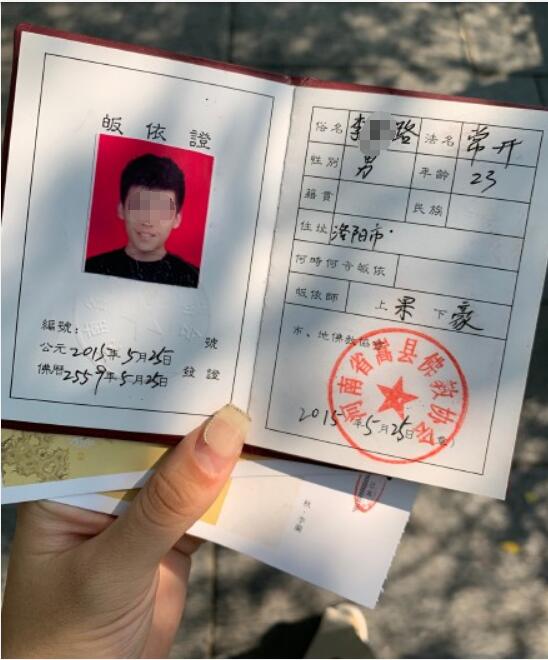 皈依證
編號： 號
公元2015年5月25日
佛曆2559年5月25日 發證
俗名 李 路 法名 常开
性別 男 年齡 23
籍貫 民族
住址 洛阳市
何時何寺皈依
皈依師 上 果 下 豪
市、地佛教協會
河南省嵩县佛教协会
2015年5月25日